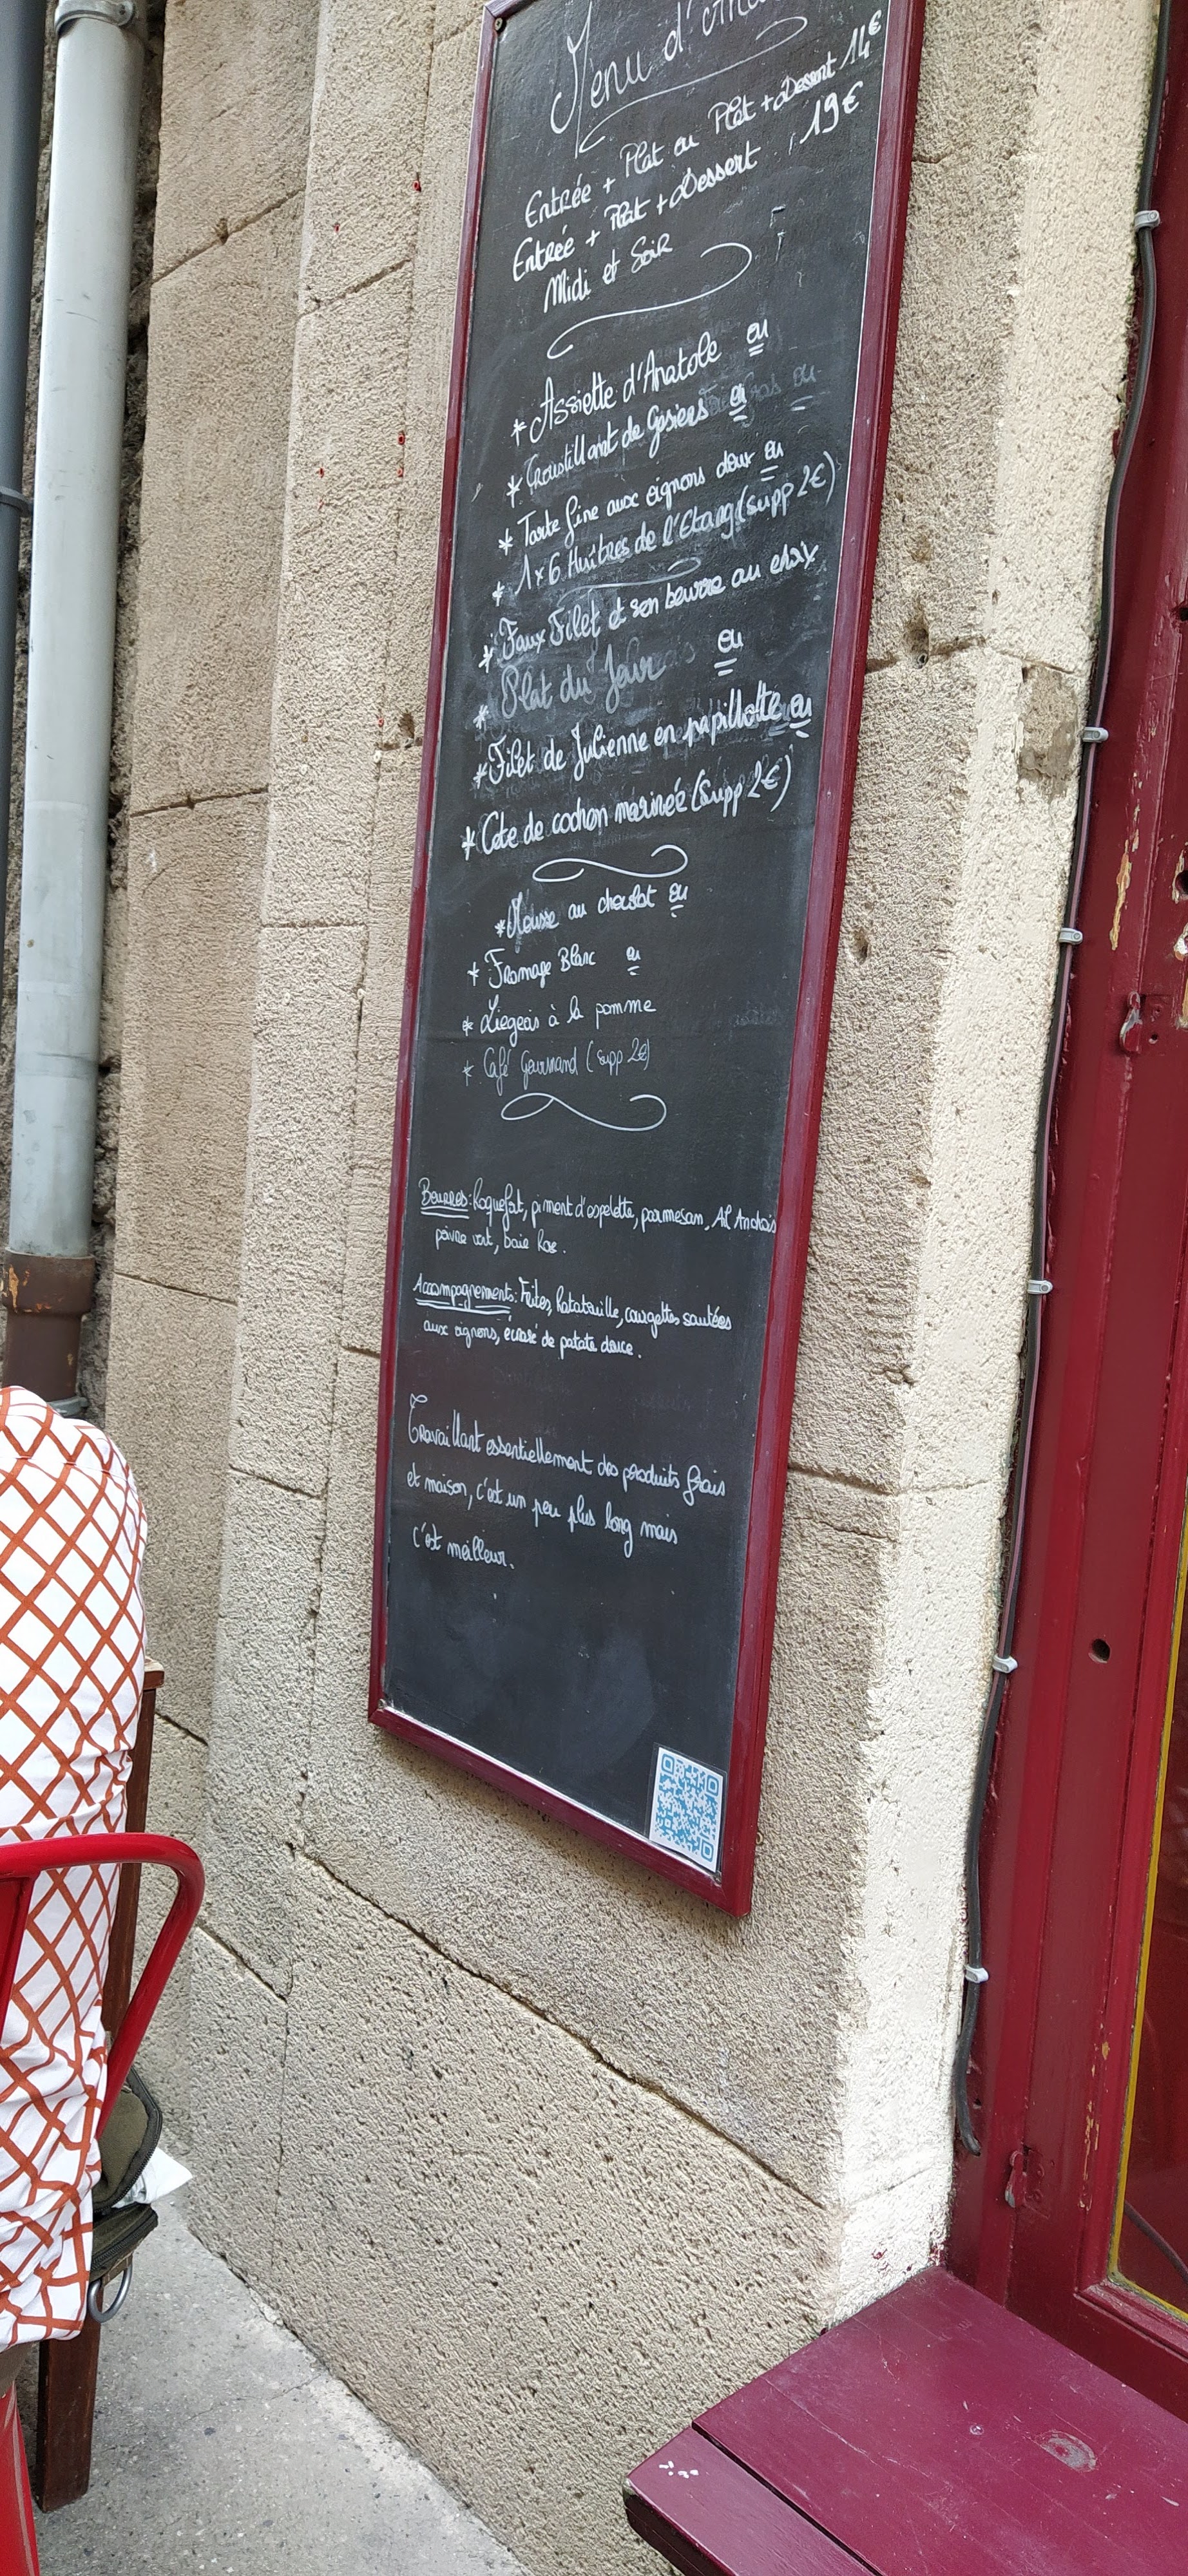 Menu d'
Entrée + Plat ou Plat + Dessert 14€
Entrée + Plat + Dessert 19€
Midi et Soir
* Assiette d'Anatole ou
* Croustillant de Gesiers ou
* Tarte fine aux oignons doux ou
* 1x6 Huîtres de l'Etang (supp 2€)
* Faux Filet et son beurre au choix
* Plat du Jour ou
* Filet de Julienne en papillotte ou
* Cote de cochon marinée (Supp 2€)
* Mousse au chocolat ou
* Fromage Blanc ou
* Liegeois à la pomme
* Café Gourmand (supp 2€)
Beurres: Roquefort, piment d'espelette, parmesan, Ail Anchois
poivre vert, baie Rose.
Accompagnements: Frites, Ratatouille, courgettes sautées
aux oignons, écrasé de patate douce.
Travaillant essentiellement des produits frais
et maison, c'est un peu plus long mais
c'est meilleur.